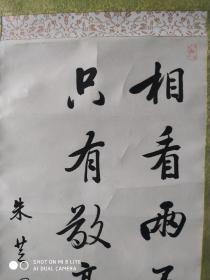 相看两不
只有敬亭
朱芸
SHOT ON MI 8 LITE
AI DUAL CAMERA